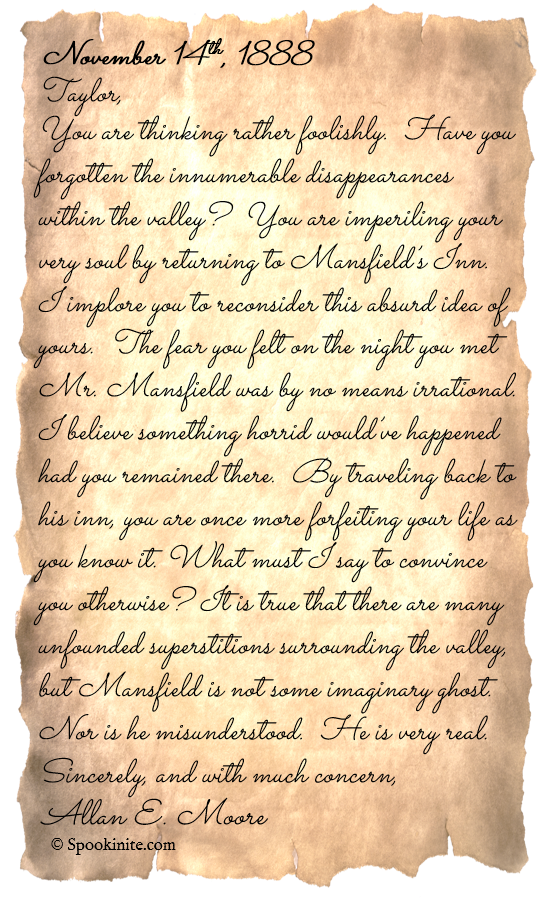 November 14th, 1888
Taylor,
You are thinking rather foolishly. Have you
forgotten the innumerable disappearances
within the valley? You are imperiling your
very soul by returning to Mansfield's Inn.
I implore you to reconsider this absurd idea of
yours. The fear you felt on the night you met
Mr. Mansfield was by no means irrational.
I believe something horrid would've happened
had you remained there. By traveling back to
his inn, you are once more forfeiting your life as
you know it. What must I say to convince
you otherwise? It is true that there are many
unfounded superstitions surrounding the valley,
but Mansfield is not some imaginary ghost.
Nor is he misunderstood. He is very real.
Sincerely, and with much concern,
Allan E. Moore
© Spookinite.com